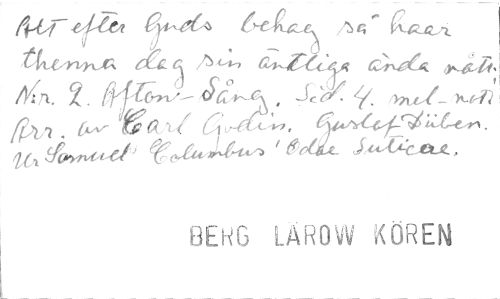 Alt efter Guds behag så haar
thenna dag sin ändtliga ända nått.
N:r. 2. Afton-Sång. Sid. 4. mel-not.
Arr. av Carl Godin. Gustaf Düben.
Ur Samuel Columbus' Odae Sueticae.
BERG LÄROW KÖREN